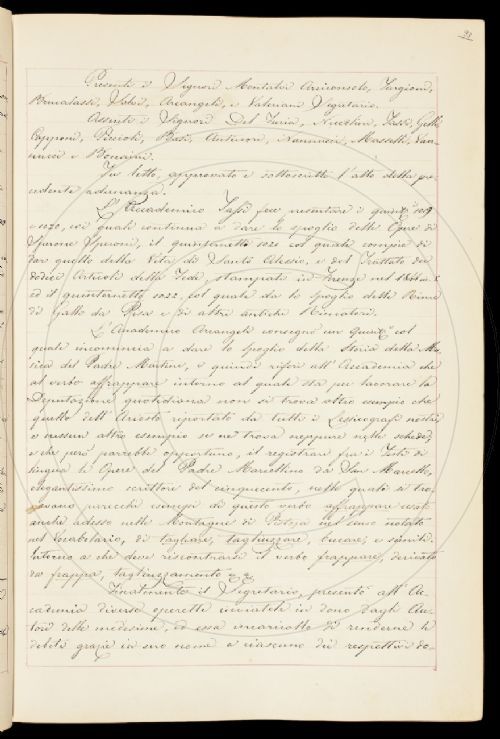 Presenti i Signori Montalvi Arciconsolo, Targioni,
Brucalassi, Valeri, Arcangeli, e Valeriani Segretario.
Assenti i Signori Del Furia, Nuccoli, Tassi, Gelli
Capponi, Piccioli, Basi, Antinori, Nannucci, Mascelli, Van-
nucci e Bencini.
Fu letto, approvato e sottoscritto l'atto della pre-
cedente adunanza.
L'Accademico Tassi fece presentare i quint.ni 1019
e 1020, coi quali continua a dare lo spoglio delle Opere di
Sperone Speroni, il quinternetto 1021 col quale compie di
dar quello della Vita di Santo Alessio, e del Trattato dei
dodici Articoli della Fede, stampate in Firenze nel
ed il quinternetto 1022, col quale da lo spoglio delle Rime
di Gallo da Pisa e di altri antichi Rimatori.
L'Accademico Arcangeli consegnò un Quint.o col
quale incomincia a dare lo spoglio della Storia della Mu-
sica del Padre Martini, e quindi riferì all'Accademia che
al verbo affrappare intorno al quale sta per lavorare la
Deputazione quotidiana non si trova altro esempio che
quello dell'Ariosto riportato da tutti i Lessicografi nostri,
e nessun altro esempio se ne trova neppure nelle schede,
e che però parrebbe opportuno, il registrare fra i Testi di
lingua le Opere del Padre Marcellino da San Marcello,
elegantissimo scrittore del cinquecento, nelle quali si tro-
vano parecchi esempi di questo verbo affrappare usato
anche adesso nelle Montagne di Pistoja nel senso notato
nel Vocabolario, di tagliare, tagliuzzare, e simili.
Intorno a che deve riscontrarsi il verbo frappare, derivato
da frappa, tagliuzzamento &c. &c.
Finalmente il Segretario, presentò all'Ac-
cademia diverse operette inviatele in dono dagli Au-
tori delle medesime, ed essa incaricollo di renderne le
debite grazie in suo nome a ciascuno dei respettivi do-